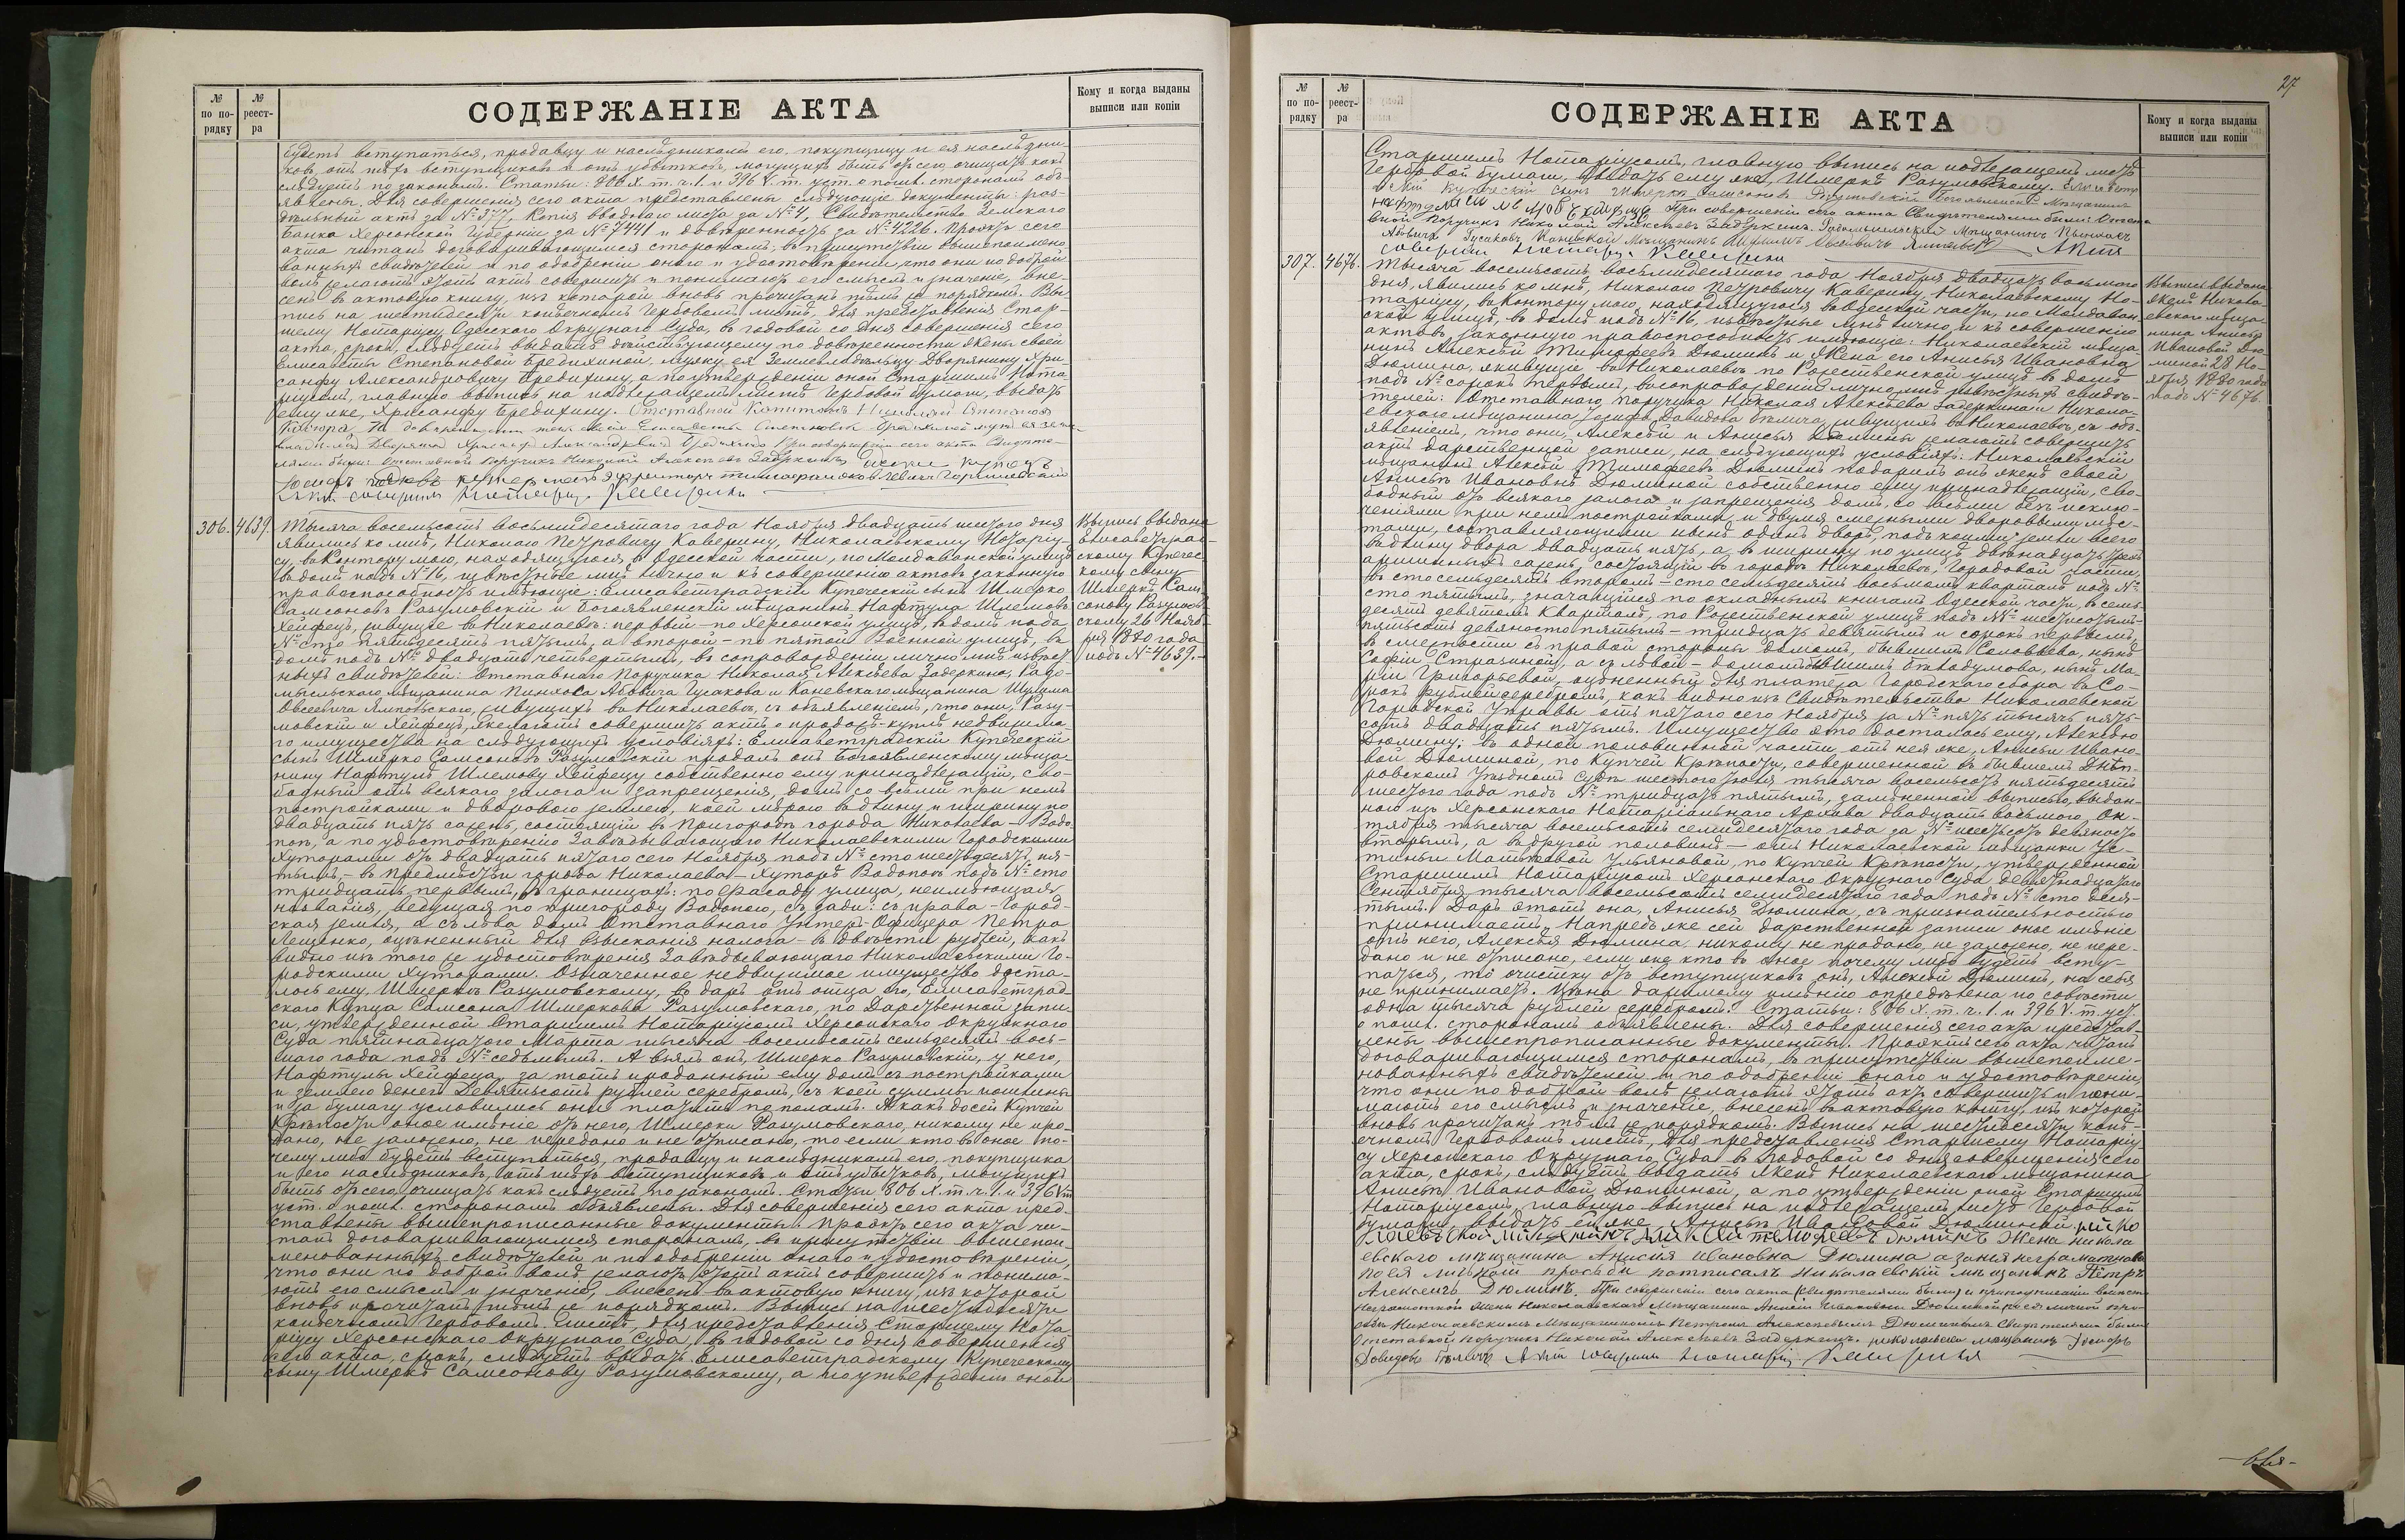 № по по-рядку
№ реест-ра
СОДЕРЖАНІЕ АКТА
Кому и когда выданы выписи или копіи
будетъ вступаться, продавцу и наслѣдникамъ его, покупщицу и ея наслѣдни-
ковъ, отъ тѣхъ вступщиковъ и отъ убытковъ, могущихъ быть отъ сего, очищать какъ
слѣдуетъ по законамъ. Статьи: 806 X. т. ч. 1. и 396 V. т. уст. о пошл. сторонамъ объ-
явлены. Для совершенія сего акта представлены слѣдующіе документы: раз-
дѣльный актъ за № 377, Копія вводнаго листа за № 4, Свидѣтельство Земскаго
Банка Херсонской Губерніи за № 7441 и довѣренность за № 4226. Проэктъ сего
акта читанъ договаривающимся сторонамъ, въ присутствіи вышепоимено-
ванныхъ свидѣтелей и по одобреніи онаго и удостовѣреніи, что они по доброй
волѣ желаютъ этотъ актъ совершить и понимаютъ его смыслъ и значеніе, вне-
сенъ въ актовую книгу, изъ которой вновь прочитанъ тѣмъ же порядкомъ. Вы-
пись на шестидесяти копѣечномъ Гербовомъ листѣ, для представленія Стар-
шему Нотаріусу Одесскаго Окружнаго Суда, въ годовой со дня совершенія сего
акта, срокъ, слѣдуетъ выдать дѣйствующему по довѣренности жены своей
Елисаветы Степановой Бредихиной, мужу ея Землевладѣльцу Дворянину Хри-
санфу Александровичу Бредихину, а по утвержденіи оной Старшимъ Нота-
ріусомъ, главную выпись на подлежащемъ листѣ Гербовой бумаги, выдать
ему же, Хрисанфу Бредихину. Отставной Капитанъ
по довѣренности жены своей Елисаветы Степановой Бредихиной мужъ ея земле-
владѣлецъ Дворянинъ Хрисанфъ Александровичъ Бредихинъ При совершеніи сего акта Свидѣте-
лями были: Отставной Поручикъ Николай Алексѣевъ Задеркинъ
Актъ совершилъ Нотаріусъ Каверинъ
306. 4639. Тысяча восемьсотъ восьмидесятаго года Ноября двадцать шестого дня
явились ко мнѣ, Николаю Петровичу Каверину, Николаевскому Нотаріу-
су, въ Контору мою, находящуюся, въ Одесской части, по Молдаванской улицѣ
въ домѣ подъ № 16, извѣстные мнѣ лично и къ совершенію актовъ законную
правоспособность имѣющіе: Елисаветградскій Купеческій сынъ Шмерко
Самсоновъ Разумовскій и Богоявленскій мѣщанинъ Нафтула Шлемовъ
Хейфецъ, живущіе въ Николаевѣ: первый - по Херсонской улицѣ, въ домѣ подъ
№ сто пятьдесятъ пятымъ, а второй - по пятой Военной улицѣ, въ
домѣ подъ № двадцать четвертымъ, въ сопровожденіи лично мнѣ извѣст-
ныхъ свидѣтелей: Отставнаго Поручика Николая Алексѣева Задеркина, Радо-
мысльскаго мѣщанина Пинхоса Абовича Гусакова и Каневскаго мѣщанина Шулима
Овсеевича Ямпольскаго, живущихъ въ Николаевѣ, съ объявленіемъ, что они, Разу-
мовскій и Хейфецъ, желаютъ совершить актъ о продажѣ-куплѣ недвижима-
го имущества на слѣдующихъ условіяхъ: Елисаветградскій Купеческій
сынъ Шмерко Самсоновъ Разумовскій продалъ онъ Богоявленскому мѣща-
нину Нафтулѣ Шлемову Хейфецу собственно ему принадлежащій, сво-
бодный отъ всякаго залога и запрещенія, домъ со всѣми при немъ
постройками и дворовою землею, коей мѣрою въ длину и ширину по
двадцать пять сажень, состоящій въ Пригородѣ города Николаева - Водо-
поѣ, а по удостовѣренію Завѣдывающаго Николаевскими Городскими
Хуторами отъ двадцать пятаго сего Ноября подъ № сто шестьдесятъ пя-
тымъ, - въ предмѣстьи города Николаева - Хуторѣ Водопоѣ подъ № сто
тридцать первымъ, въ границахъ: по фасаду улица, неимѣющая
названія, ведущая по пригороду Водопою, съ зади: съ права - Город-
ская земля, а съ лѣва домъ Отставнаго Унтеръ-Офицера Петра
Лещенко, оцѣненный для взысканія налога - въ двѣсти рублей, какъ
видно изъ того же удостовѣренія Завѣдывающаго Николаевскими Го-
родскими Хуторами. Означенное недвижимое имущество доста-
лось ему, Шмеркѣ Разумовскому, въ даръ отъ отца его, Елисаветград-
скаго Купца Самсона Шмеркова Разумовскаго, по Дарственной запи-
си, утвержденной Старшимъ Нотаріусомъ Херсонскаго Окружнаго
Суда пятнадцатого Марта тысяча восемьсотъ семьдесятъ вось-
маго года подъ № седьмымъ. А взялъ онъ, Шмерко Разумовскій, у него,
Нафтулы Хейфеца, за тотъ проданный ему домъ съ постройками
и землею денегъ Девятьсотъ рублей серебромъ, съ коей суммы пошлины
и за бумагу условились они платить по поламъ. А какъ до сей Купчей
Крѣпости оное имѣніе отъ него, Шмерки Разумовскаго, никому не про-
дано, не заложено, не передано и не описано, то если кто въ оное по-
чему либо будетъ вступаться, продавцу и наслѣдникамъ его, покупщика
и его наслѣдниковъ, отъ тѣхъ вступщиковъ и отъ убытковъ, могущихъ
быть отъ сего, очищать какъ слѣдуетъ по законамъ. Статьи 806 X. т. ч. 1. и 396 V т.
уст. о пошл. сторонамъ объявлены. Для совершенія сего акта пред-
ставлены вышепрописанные документы. Проэктъ сего акта чи-
танъ договаривающимся сторонамъ, въ присутствіи вышепои-
менованныхъ свидѣтелей и по одобреніи онаго и удостовѣреніи,
что они по доброй волѣ желаютъ этотъ актъ совершить и понима-
ютъ его смыслъ и значеніе, внесенъ въ актовую книгу, изъ которой
вновь прочитанъ тѣмъ же порядкомъ. Выпись на шестидесяти
копѣечномъ Гербовомъ листѣ, для представленія Старшему Нота-
ріусу Херсонскаго Окружнаго Суда, въ годовой со дня совершенія
сего акта, срокъ, слѣдуетъ выдать Елисаветградскому Купеческому
сыну Шмеркѣ Самсонову Разумовскому, а по утвержденіи оной
Выпись выдана
Елисаветград-
скому Купечес-
кому сыну
Шмеркѣ Сам-
сонову Разумов-
скому 26 Нояб-
ря 1880 года
подъ № 4639.-
27
№ по по-рядку
№ реест-ра
СОДЕРЖАНІЕ АКТА
Кому и когда выданы выписи или копіи
Старшимъ Нотаріусомъ, главную выпись на подлежащемъ листѣ
Гербовой бумаги, выдать ему же, Шмеркѣ Разумовскому. Елисаветгр
адскій Купеческій Сынъ Шмерка Самсоновъ Разумовскій Богоявленскій Мѣщанинъ
При совершеніи сего акта Свидѣтелями были: Отста
вной Поручикъ Николай Алексѣевъ Задеркинъ. Радомысльскій Мѣщанинъ Пинхосъ
Абовичъ Гусаковъ Каневскій Мѣщанинъ Шулимъ Овсеевичъ Ямпольскій Актъ
совершилъ Нотаріусъ Каверинъ
307. 4676. Тысяча восемьсотъ восьмидесятаго года Ноября двадцать восьмого
дня, явились ко мнѣ, Николаю Петровичу Каверину, Николаевскому Но-
таріусу, въ Контору мою, находящуюся въ Одесской части, по Молдаван-
ской улицѣ, въ домѣ подъ № 16, извѣстные мнѣ лично и къ совершенію
актовъ законную правоспособность имѣющіе: Николаевскій мѣща-
нинъ Алексѣй Тимофеевъ Дюминъ и жена его Анисья Ивановна
Дюмина, живущіе въ Николаевѣ по Рожественской улицѣ въ домѣ
подъ № сорокъ первымъ, въ сопровожденіи лично мнѣ извѣстныхъ свидѣ-
телей: Отставнаго Поручика Николая Алексѣева Задеркина и Никола-
евскаго мѣщанина Іосифа Давидова Бѣлича, живущихъ въ Николаевѣ, съ объ-
явленіемъ, что они, Алексѣй и Анисья Дюмины желаютъ совершить
актъ дарственной записи, на слѣдующихъ условіяхъ: Николаевскій
мѣщанинъ Алексѣй Тимофеевъ Дюминъ подарилъ онъ женѣ своей
Анисьѣ Ивановнѣ Дюминой собственно ему принадлежащій, сво-
бодный отъ всякаго залога и запрещенія домъ, со всѣми безъ исклю-
ченія при немъ постройками и двумя смежными дворовыми мѣс-
тами, составляющими нынѣ одинъ дворъ, подъ коими земли всего
въ длину двора двадцать пять, а въ ширину по улицѣ двѣнадцать трех
аршинныхъ сажень, состоящій въ городѣ Николаевѣ, Городовой части,
въ сто семьдесятъ второмъ - сто семьдесятъ восьмомъ кварталѣ подъ №
сто пятымъ, значащійся по окладнымъ книгамъ Одесской части, въ семь-
десятъ девятомъ Кварталѣ, по Рожественской улицѣ подъ №№ шестьсотъ-
пятьсотъ девяносто пятымъ - тридцать девятымъ и сорокъ первымъ,
въ смежности съ правой стороны домомъ, бывшимъ Соловьева, нынѣ
Софіи Страшной, а съ лѣвой - домомъ бывшимъ Бѣлодумова, нынѣ Ма-
ріи Григорьевой, оцѣненный для платежа Городскаго сбора въ Со-
рокъ рублей серебромъ, какъ видно изъ Свидѣтельства Николаевской
Городской Управы отъ пятаго сего Ноября за № пять тысячъ пять-
сотъ двадцать пятымъ. Имущество это досталось ему, Алексѣю
Дюмину: въ одной половинной части отъ нея же, Анисьи Ивано-
вой Дюминой, по Купчей Крѣпости, совершенной въ бывшемъ Днѣп-
ровскомъ Уѣздномъ Судѣ шестого Іюня тысяча восемьсотъ пятьдесятъ
шестого года подъ № тридцать пятымъ, замѣненной выписью, выдан-
ною изъ Херсонскаго Нотаріальнаго Архива двадцать восьмого Ок-
тября тысяча восемьсотъ семидесятаго года за № шестьсотъ девяносто
вторымъ, а въ другой половинѣ - отъ Николаевской мѣщанки Ус-
тиньи Матвѣевой Ульяновой, по Купчей Крѣпости, утвержденной
Старшимъ Нотаріусомъ Херсонскаго Окружнаго Суда девятнадцатаго
Сентября тысяча восемьсотъ семидесятаго года подъ № сто деся-
тымъ. Даръ этотъ она, Анисья Дюмина, съ признательностью
принимаетъ. Напредъ же сей дарственной записи оное имѣніе
отъ него, Алексѣя Дюмина никому не продано, не заложено, не пере-
дано и не описано, если же кто въ оное почему либо будетъ всту-
паться, то очистку отъ вступщиковъ онъ, Алексѣй Дюминъ, на себя
не принимаетъ. Цѣна даримому имѣнію опредѣлена по совѣсти
одна тысяча рублей серебромъ. Статьи: 806 X. т. ч. 1. и 396 V. т. уст.
о пошл. сторонамъ объявлены. Для совершенія сего акта представ-
лены вышепрописанные документы. Проэктъ сего акта читанъ
договаривающимся сторонамъ, въ присутствіи вышепоиме-
нованныхъ свидѣтелей и по одобреніи онаго и удостовѣреніи,
что они по доброй волѣ желаютъ этотъ актъ совершить и пони-
маютъ его смыслъ и значеніе, внесенъ въ актовую книгу, изъ которой
вновь прочитанъ тѣмъ же порядкомъ. Выпись на шестидесяти копѣ-
ечномъ Гербовомъ листѣ, для представленія Старшему Нотаріу-
су Херсонскаго Окружнаго Суда въ годовой со дня совершенія сего
акта, срокъ, слѣдуетъ выдать женѣ Николаевскаго мѣщанина
Анисьѣ Ивановой Дюминой, а по утвержденіи оной Старшимъ
Нотаріусомъ, главную выпись на подлежащемъ листѣ Гербовой
бумаги, выдать ей же, Анисьѣ Ивановой Дюминой. Нико
лаевской Мищенинъ Аликсѣй тимофеевъ дюминъ Жена никола
евского мещанина Анисія Ивановна Дюмина а за нея неграматнаю
по ея личьной прозбѣ потписалъ николаевскій мѣщанинъ Пётръ
Алексеевъ Дюминъ. При совершеніи сего акта свидѣтелями были и при подписаніи вмѣсто
неграмотной жены Николаевскаго Мѣщанина Анисіи Ивановны Дюминой по ея личной про-
сьбѣ Николаевскимъ Мѣщаниномъ Петромъ Алексеевымъ Дюминымъ Свидѣтелями были
Отставной Поручикъ Николай Алексѣевъ Задеркинъ. николаевскій мѣщанинъ Іосифъ
Давидовъ Бѣличъ Актъ совершилъ Нотаріусъ Каверинъ
Выпись выдана
женѣ Никола-
евскаго мѣща-
нина Анисьѣ
Ивановой Дю-
миной 28 Но-
ября 1880 года
подъ № 4676.